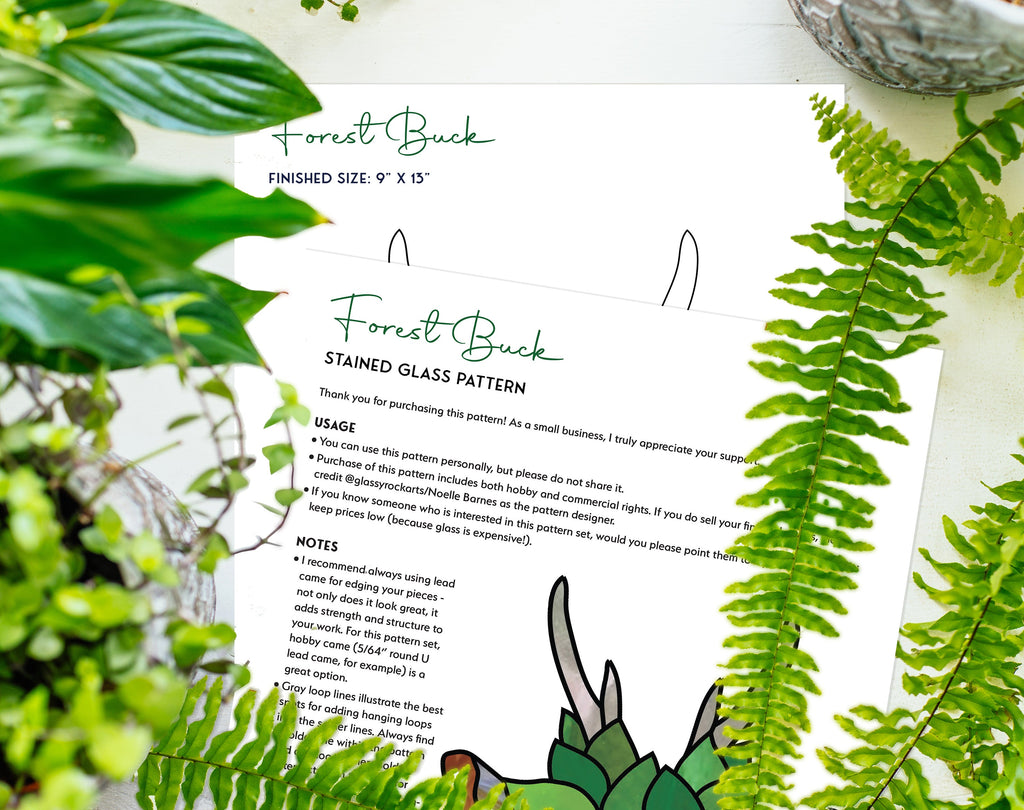 Forest Buck
FINISHED SIZE: 9" X 13"
Forest Buck
STAINED GLASS PATTERN
Thank you for purchasing this pattern! As a small business, I truly appreciate your support.
USAGE
• You can use this pattern personally, but please do not share it.
• Purchase of this pattern includes both hobby and commercial rights. If you do sell your
credit @glassyrockarts/Noelle Barnes as the pattern designer.
• If you know someone who is interested in this pattern set, would you please point them to
keep prices low (because glass is expensive!).
NOTES
• I recommend always using lead
came for edging your pieces -
not only does it look great, it
adds strength and structure to
your work. For this pattern set,
hobby came (5/64" round U
lead came, for example) is a
great option.
• Gray loop lines illustrate the best
spots for adding hanging loops
into the solder lines. Always find
pattern